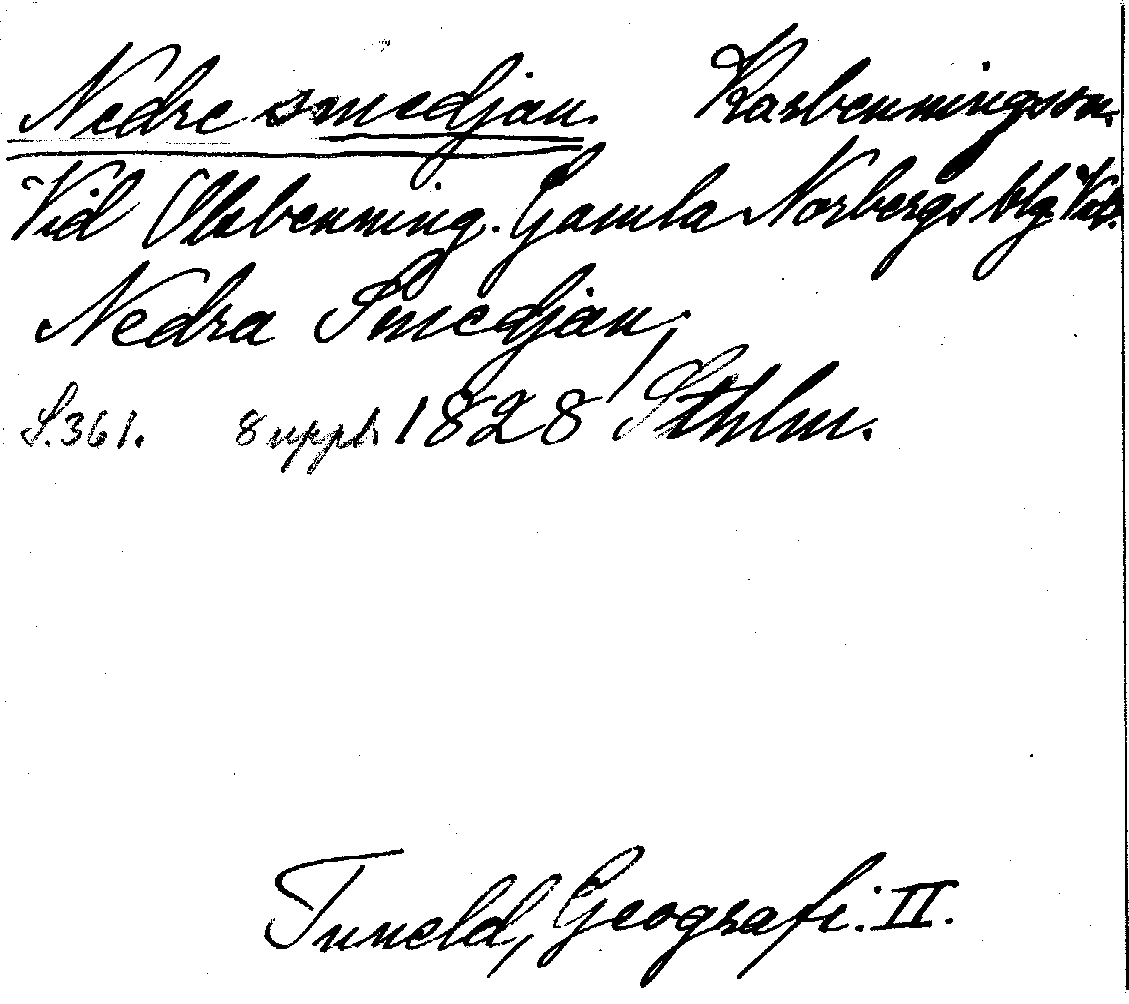 Nedre smedjan. Karbenningssn.
Vid Olsbenning. Gamla Norbergs blg. Vstm.
Nedra Smedjan,
S. 361. 8 uppl. 1828 Sthlm.
Tuneld, Geografi. II.